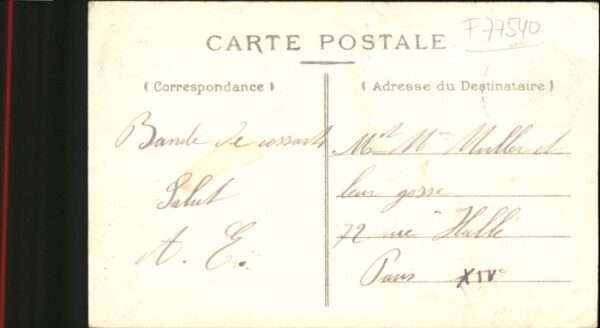 F-77540
CARTE POSTALE
(Correspondance)
(Adresse du Destinataire)
Bande de cossards
Salut
A. E.
Mr et Mme Muller et
leur gosse
72 rue Hallé
Paris XIVe